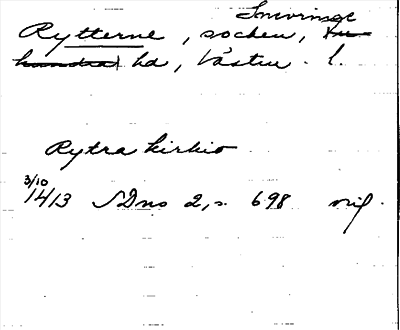 Snevringe
Rytterne, socken,
hd, Västm. l.
Rytra kirkio
3/10
1413 SDns 2, s. 698 orig.